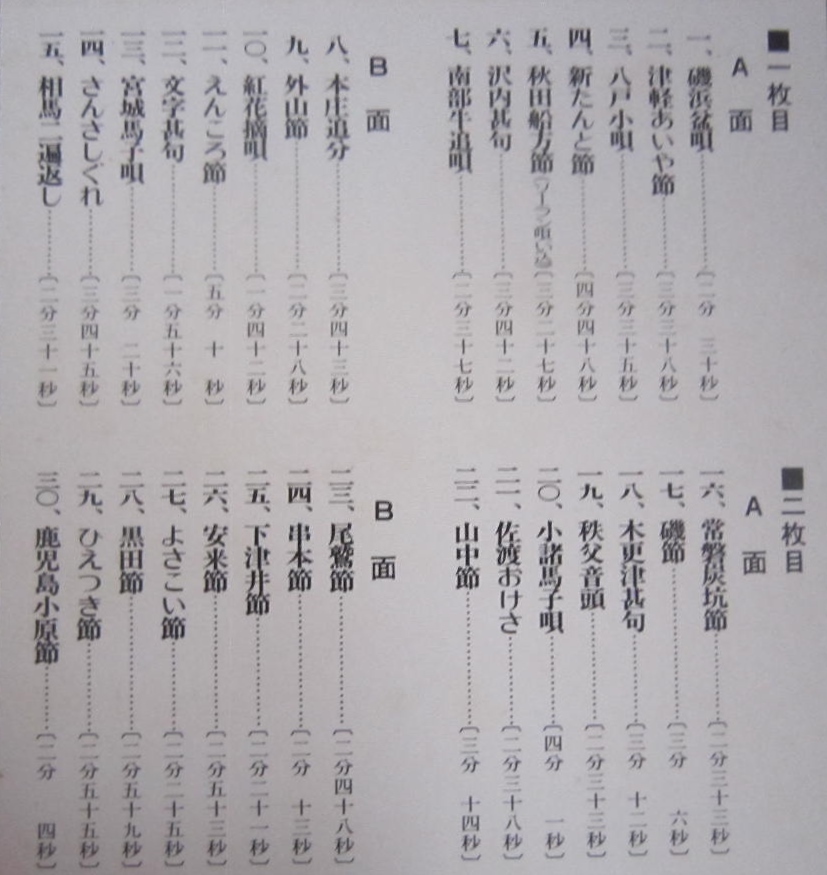 ■一枚目
A 面
一、磯浜盆唄………〔二分 三十秒〕
二、津軽あいや節………〔三分三十八秒〕
三、八戸小唄………〔三分三十五秒〕
四、新たんと節………〔四分四十八秒〕
五、秋田船方節(ソーラン唄い込)〔三分二十七秒〕
六、沢内甚句………〔三分四十二秒〕
七、南部牛追唄………〔二分三十七秒〕
B 面
八、本庄追分………〔三分四十三秒〕
九、外山節………〔二分二十八秒〕
一〇、紅花摘唄………〔一分四十二秒〕
一一、えんころ節………〔五分 十 秒〕
一二、文字甚句………〔一分五十六秒〕
一三、宮城馬子唄………〔三分 二十秒〕
一四、さんさしぐれ………〔三分四十五秒〕
一五、相馬二遍返し………〔二分三十一秒〕
■二枚目
A 面
一六、常磐炭坑節………〔二分三十三秒〕
一七、磯節………〔三分 六秒〕
一八、木更津甚句………〔三分 十二秒〕
一九、秩父音頭………〔二分三十三秒〕
二〇、小諸馬子唄………〔四分 一秒〕
二一、佐渡おけさ………〔二分三十八秒〕
二二、山中節………〔三分 十四秒〕
B 面
二三、尾鷲節………〔二分四十八秒〕
二四、串本節………〔二分 十三秒〕
二五、下津井節………〔二分二十一秒〕
二六、安来節………〔二分五十三秒〕
二七、よさこい節………〔二分二十五秒〕
二八、黒田節………〔二分五十九秒〕
二九、ひえつき節………〔二分五十五秒〕
三〇、鹿児島小原節………〔二分 四秒〕